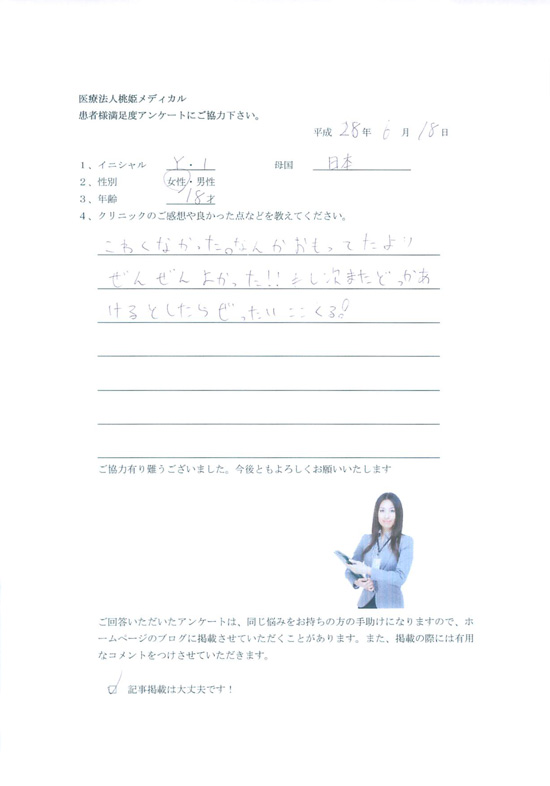 医療法人桃姫メディカル
患者様満足度アンケートにご協力下さい。
平成 28年 6月 18日
1、イニシャル Y・I 母国 日本
2、性別 女性・男性
3、年齢 18才
4、クリニックのご感想や良かった点などを教えてください。
こわくなかった。なんかおもってたより
ぜんぜんよかった!!もし次またどっかあ
けるとしたらぜったいここくる!
ご協力有り難うございました。今後ともよろしくお願いいたします
ご回答いただいたアンケートは、同じ悩みをお持ちの方の手助けになりますので、ホ
ームページのブログに掲載させていただくことがあります。また、掲載の際には有用
なコメントをつけさせていただきます。
☑ 記事掲載は大丈夫です!